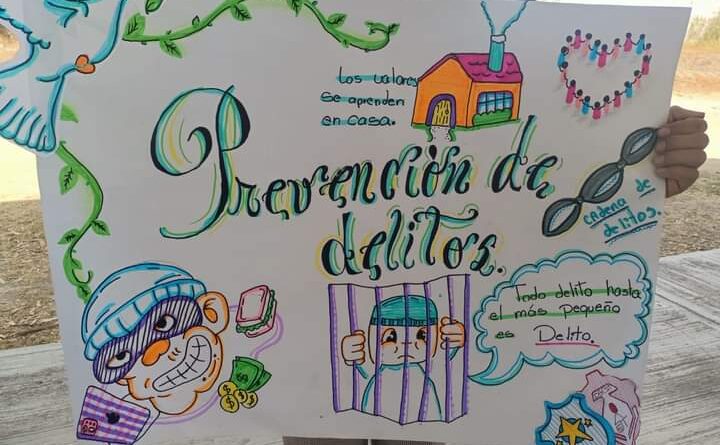 Los valores
se aprenden
en casa.
Prevención de
delitos.
cadena de
delitos.
Todo delito hasta
el más pequeño
es Delito.